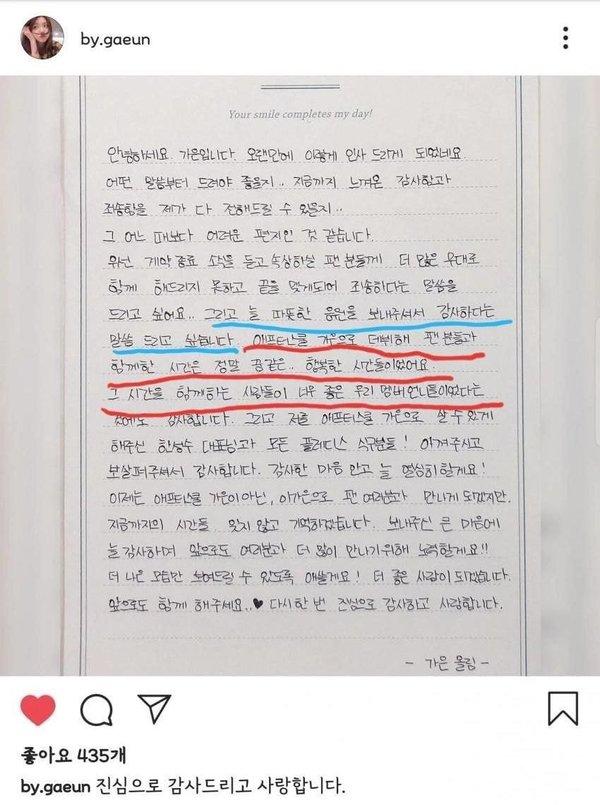 by.gaeun
Your smile completes my day!
안녕하세요 가은입니다. 오랜만에 이렇게 인사 드리게 되었네요
어떤 말씀부터 드려야 좋을지.. 지금까지 느껴온 감사함과
죄송함을 제가 다 전해드릴 수 있을지..
그 어느 때보다 어려운 편지인 것 같습니다.
우선 계약 종료 소식을 듣고 속상하실 팬 분들께 더 많은 무대로
함께 해드리지 못하고 끝을 맞게되어 죄송하다는 말씀을
드리고 싶어요.. 그리고 늘 따뜻한 응원을 보내주셔서 감사하다는
말씀 드리고 싶습니다. 애프터스쿨 가은으로 데뷔해 팬 분들과
함께한 시간은 정말 꿈같은.. 행복한 시간들이었어요.
그 시간을 함께하는 사람들이 너무 좋은 우리 멤버 언니들이었다는
것에도 감사합니다. 그리고 저를 애프터스쿨 가은으로 살 수 있게
해주신 한성수 대표님과 모든 플레디스 식구분들! 아껴주시고
보살펴주셔서 감사합니다. 감사한 마음 안고 늘 열심히 할게요!
이제는 애프터스쿨 가은이 아닌, 이가은으로 팬 여러분과 만나게 되겠지만,
지금까지의 시간들 잊지 않고 기억하겠습니다. 보내주신 큰 마음에
늘 감사하며 앞으로도 여러분과 더 많이 만나기 위해 노력할게요!!
더 나은 모습만 보여드릴 수 있도록 애쓸게요! 더 좋은 사람이 되겠습니다.
앞으로도 함께 해주세요..♥ 다시 한 번 진심으로 감사하고 사랑합니다.
- 가은 올림 -
좋아요 435개
by.gaeun 진심으로 감사드리고 사랑합니다.